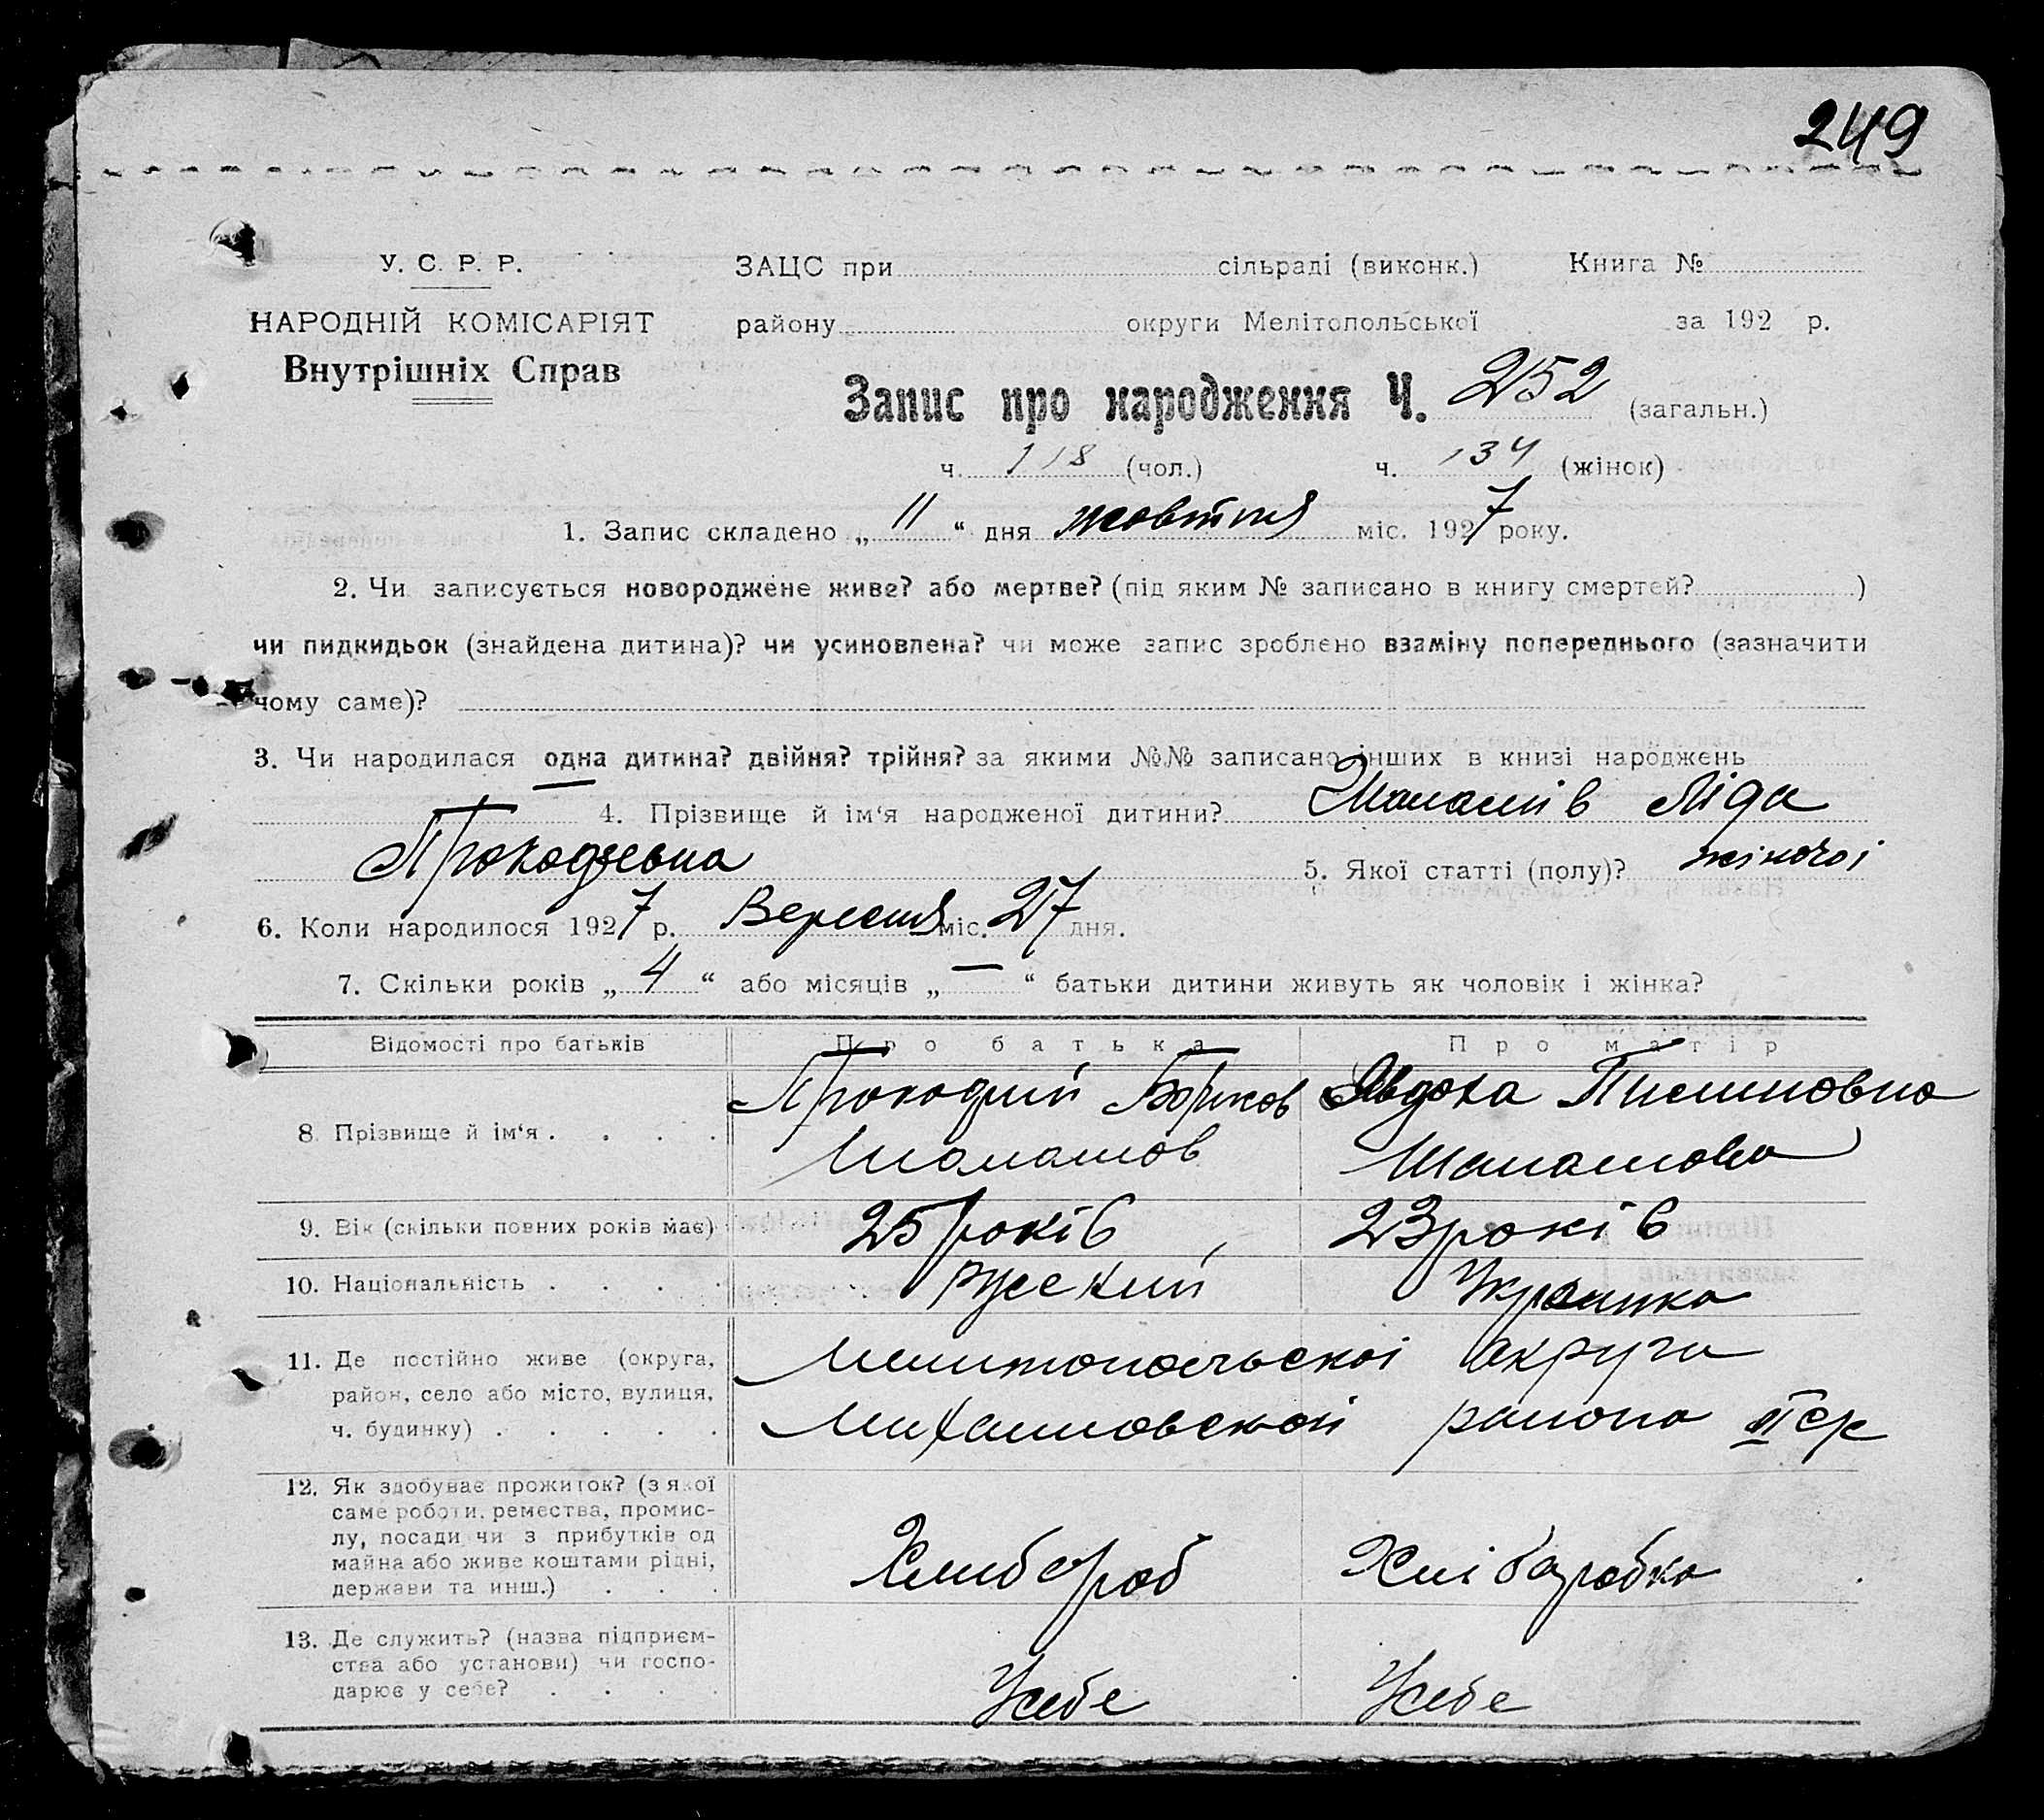 249
У. С. Р. Р.
НАРОДНІЙ КОМІСАРІЯТ
Внутрішніх Справ
ЗАЦС при сільраді (виконк.) Книга №
району округи Мелітопольської за 192 р.
Запис про народження Ч. 252 (загальн.)
ч. 118 (чол.) ч. 134 (жінок)
1. Запис складено „ 11 “ дня жовтня міс. 1927 року.
2. Чи записується новороджене живе? або мертве? (під яким № записано в книгу смертей? )
чи пидкидьок (знайдена дитина)? чи усиновлена? чи може запис зроблено взаміну попереднього (зазначити
чому саме)?
3. Чи народилася одна дитина? двійня? трійня? за якими №№ записано інших в книзі народжень
4. Прізвище й ім‘я народженої дитини? Ліда
5. Якої статті (полу)? жіночоі
6. Коли народилося 1927 р. Вересня міс. 27 дня.
7. Скільки років „ 4 “ або місяців „ — “ батьки дитини живуть як чоловік і жінка?
Відомості про батьків Про батька Про матір
8. Прізвище й ім‘я . . . . Прокофий Явдоха
9. Вік (скільки повних років має) 25 років 23 років
10. Національність . . . . русский Украинка
11. Де постійно живе (округа, район, село або місто, вулиця, ч. будинку) . . . . . Мелитопольскоі округи
Михайловской района
12. Як здобуває прожиток? (з якої саме роботи, ремества, промислу, посади чи з прибутків од майна або живе коштами рідні, держави та инш.) . . . Хлибороб Хліборобка
13. Де служить? (назва підприємства або установи) чи господарює у себе? . . . . Усебе Усебе